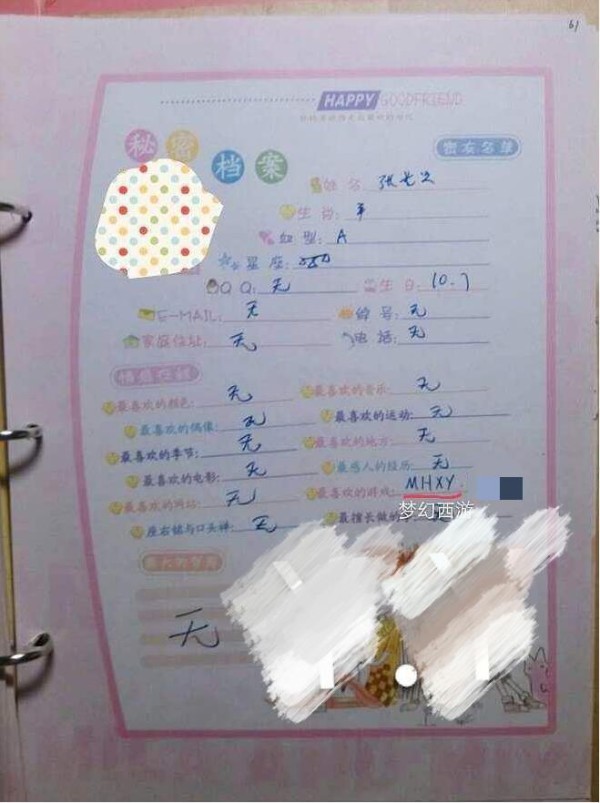 61
HAPPY GOODFRIEND
秘密档案
密友名单
姓名:
生肖: 羊
血型: A
星座:
QQ: 无 生日: 10.7
E-MAIL: 无 绰号: 无
家庭住址: 无 电话: 无
最喜欢的颜色: 无 最喜欢的音乐: 无
最喜欢的偶像: 无 最喜欢的运动: 无
最喜欢的季节: 无 最喜欢的地方: 无
最喜欢的电影: 无 最感人的经历: 无
最喜欢的网站: 无 最喜欢的游戏: MHXY.
梦幻西游
座右铭与口头禅: 无 最擅长做的
无